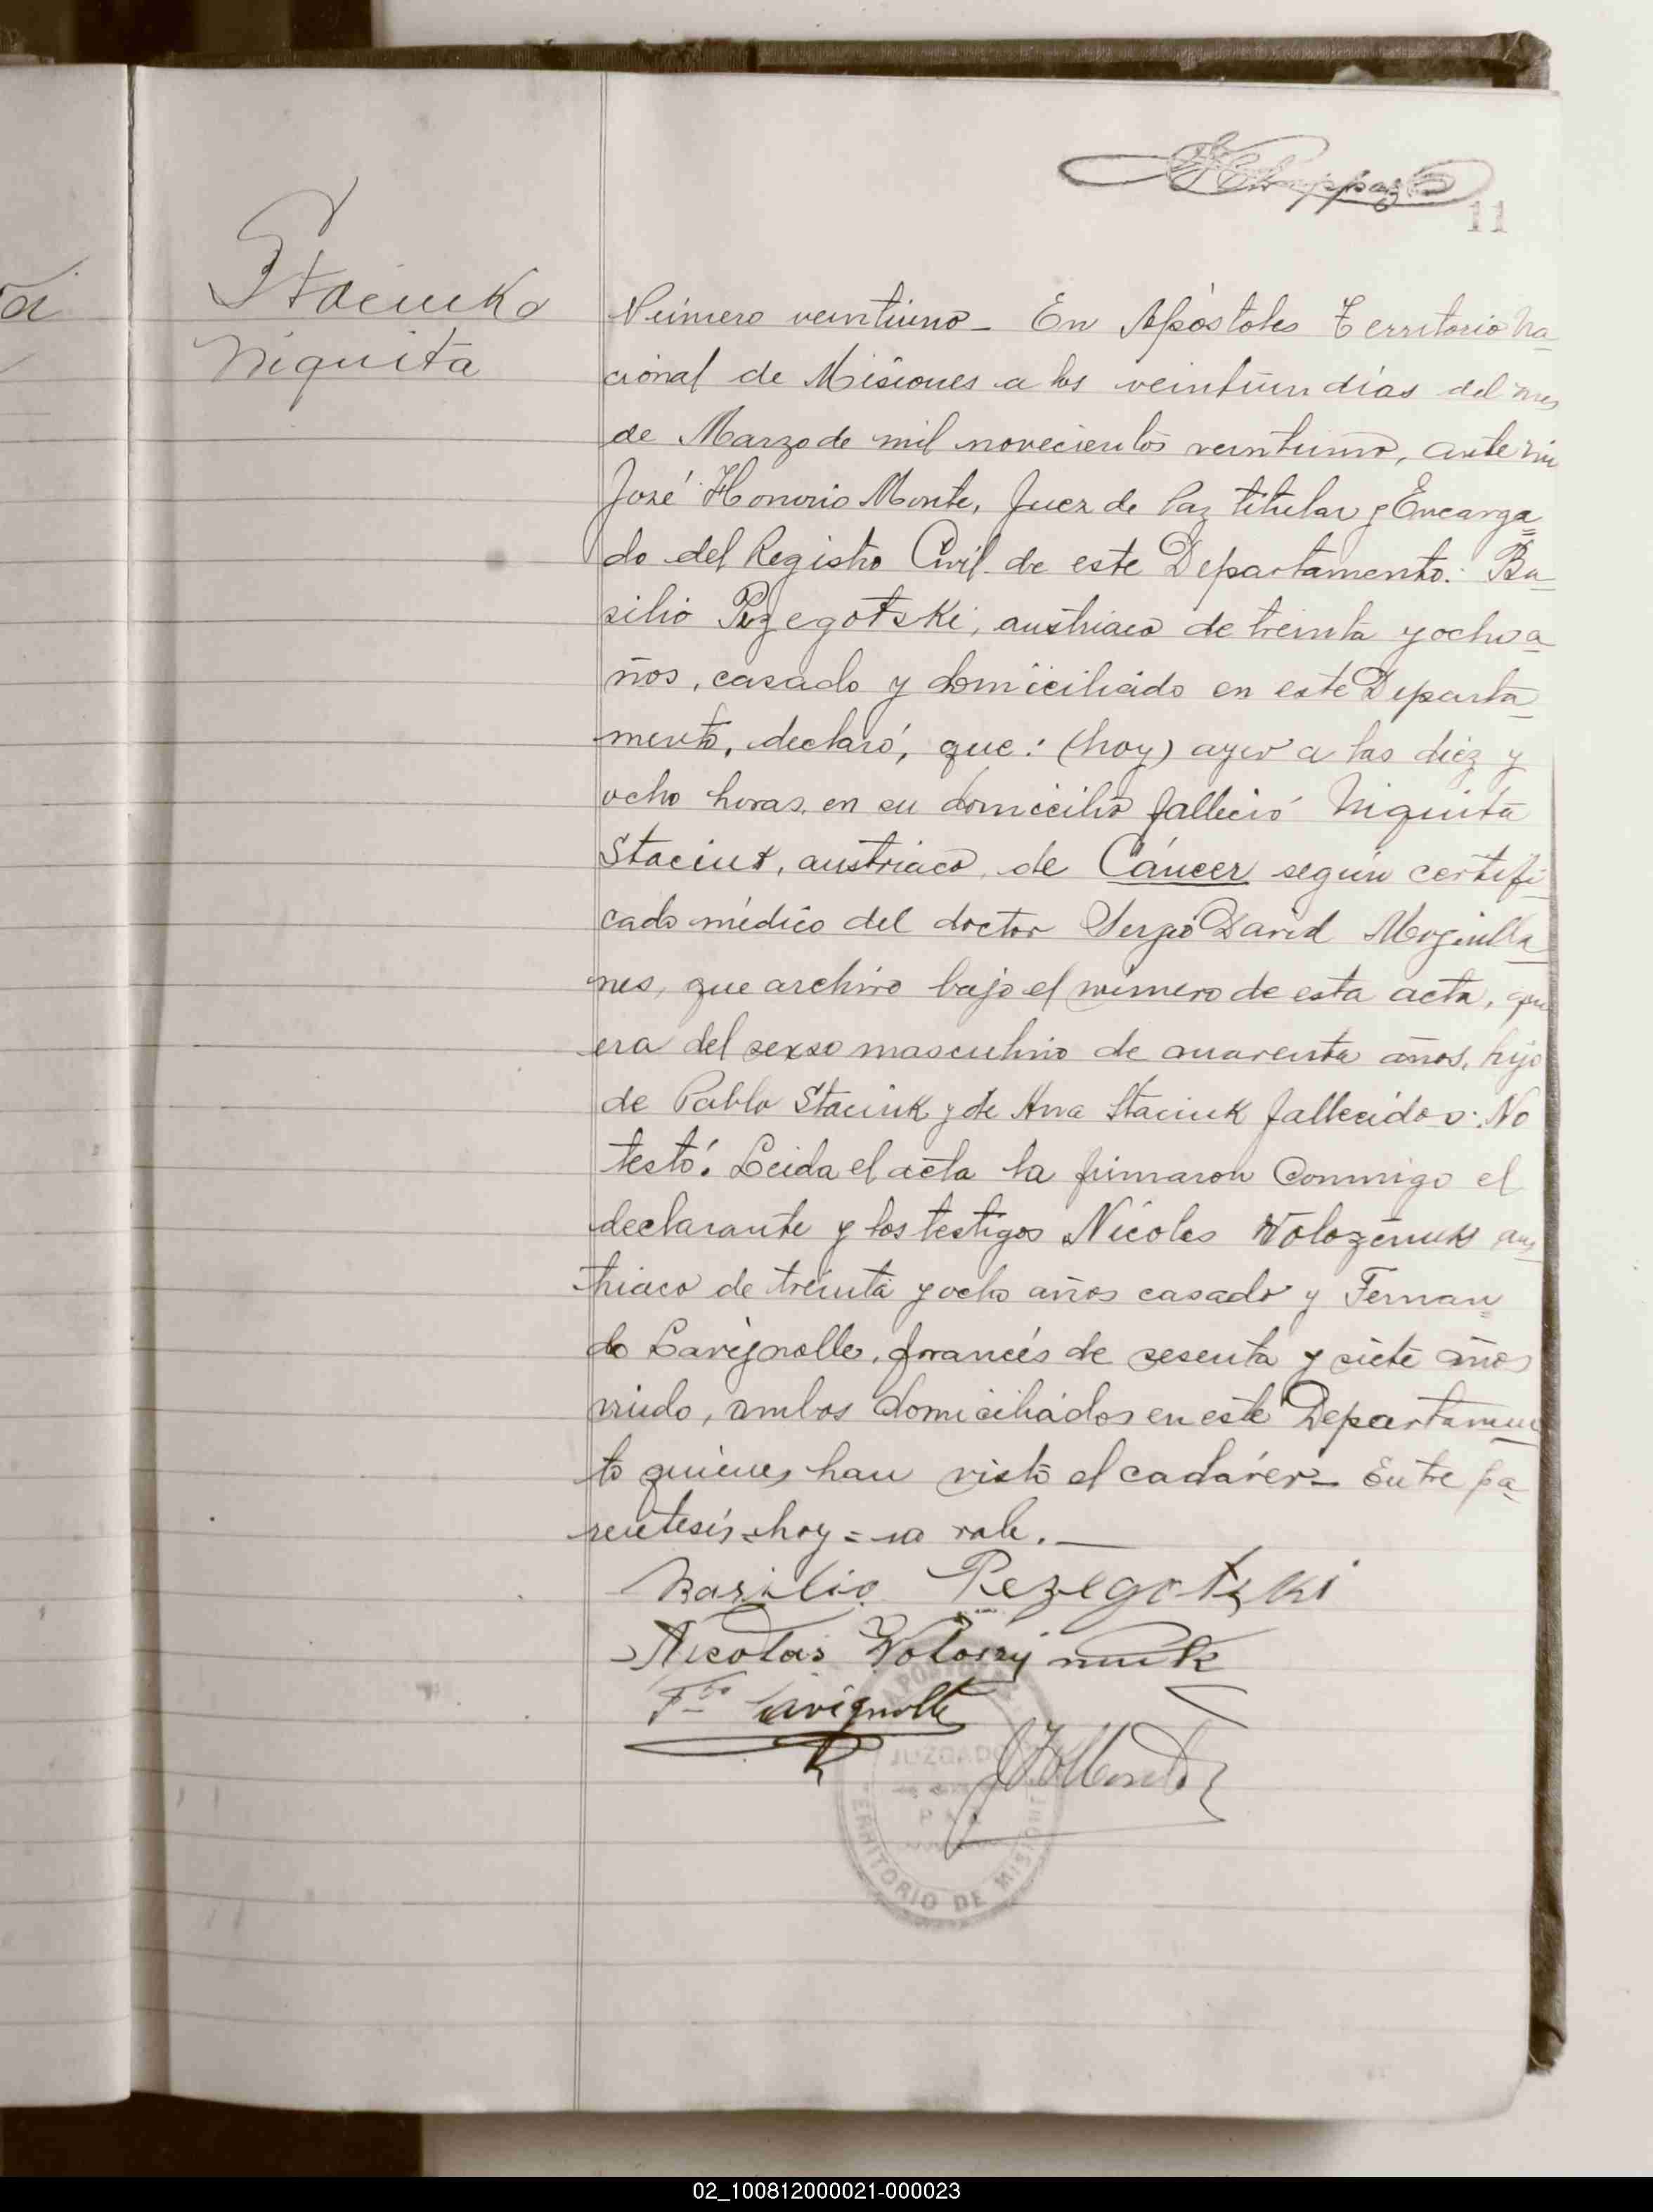 11
Staciuk
Niquita
Número veintiuno_ En Apóstoles Territorio Na-
cional de Misiones a los veintiun días del mes
de Marzo de mil novecientos veintiuno, ante mi
José Honorio Monte, Juez de Paz titular y Encarga=
do del Registro Civil de este Departamento: Ba-
silio Pezegotski, austriaco de treinta y ocho a-
ños, casado y domiciliado en este Departa-
mento, declaró, que: (hoy) ayer a las diez y
ocho horas, en su domicilio falleció Niquita
Staciuk, austriaco, de Cáncer según certifi-
cado médico del doctor Sergio David
nes, que archivo bajo el número de esta acta, que
era del sexso masculino de cuarenta años, hijo
de Pablo Staciuk y de Ana Staciuk fallecidos: No
testó. Leida el acta la firmaron conmigo el
declarante y los testigos Nícolas Wolozenuk aus-
triaco de treinta y ocho años casado y Fernan=
do Lavignolle, francés de sesenta y siete años
viudo, ambos domiciliados en este Departamen-
to quienes han visto el cadáver_ Entre pa-
rentesis=hoy=no vale._
Basilio Pezegotski
Nicolas Woloszynuk
Fdo Lavignolle
JHMonte
APOSTOLES
JUZGADO
DE
PAZ
TERRITORIO DE MISIONES
02_100812000021-000023